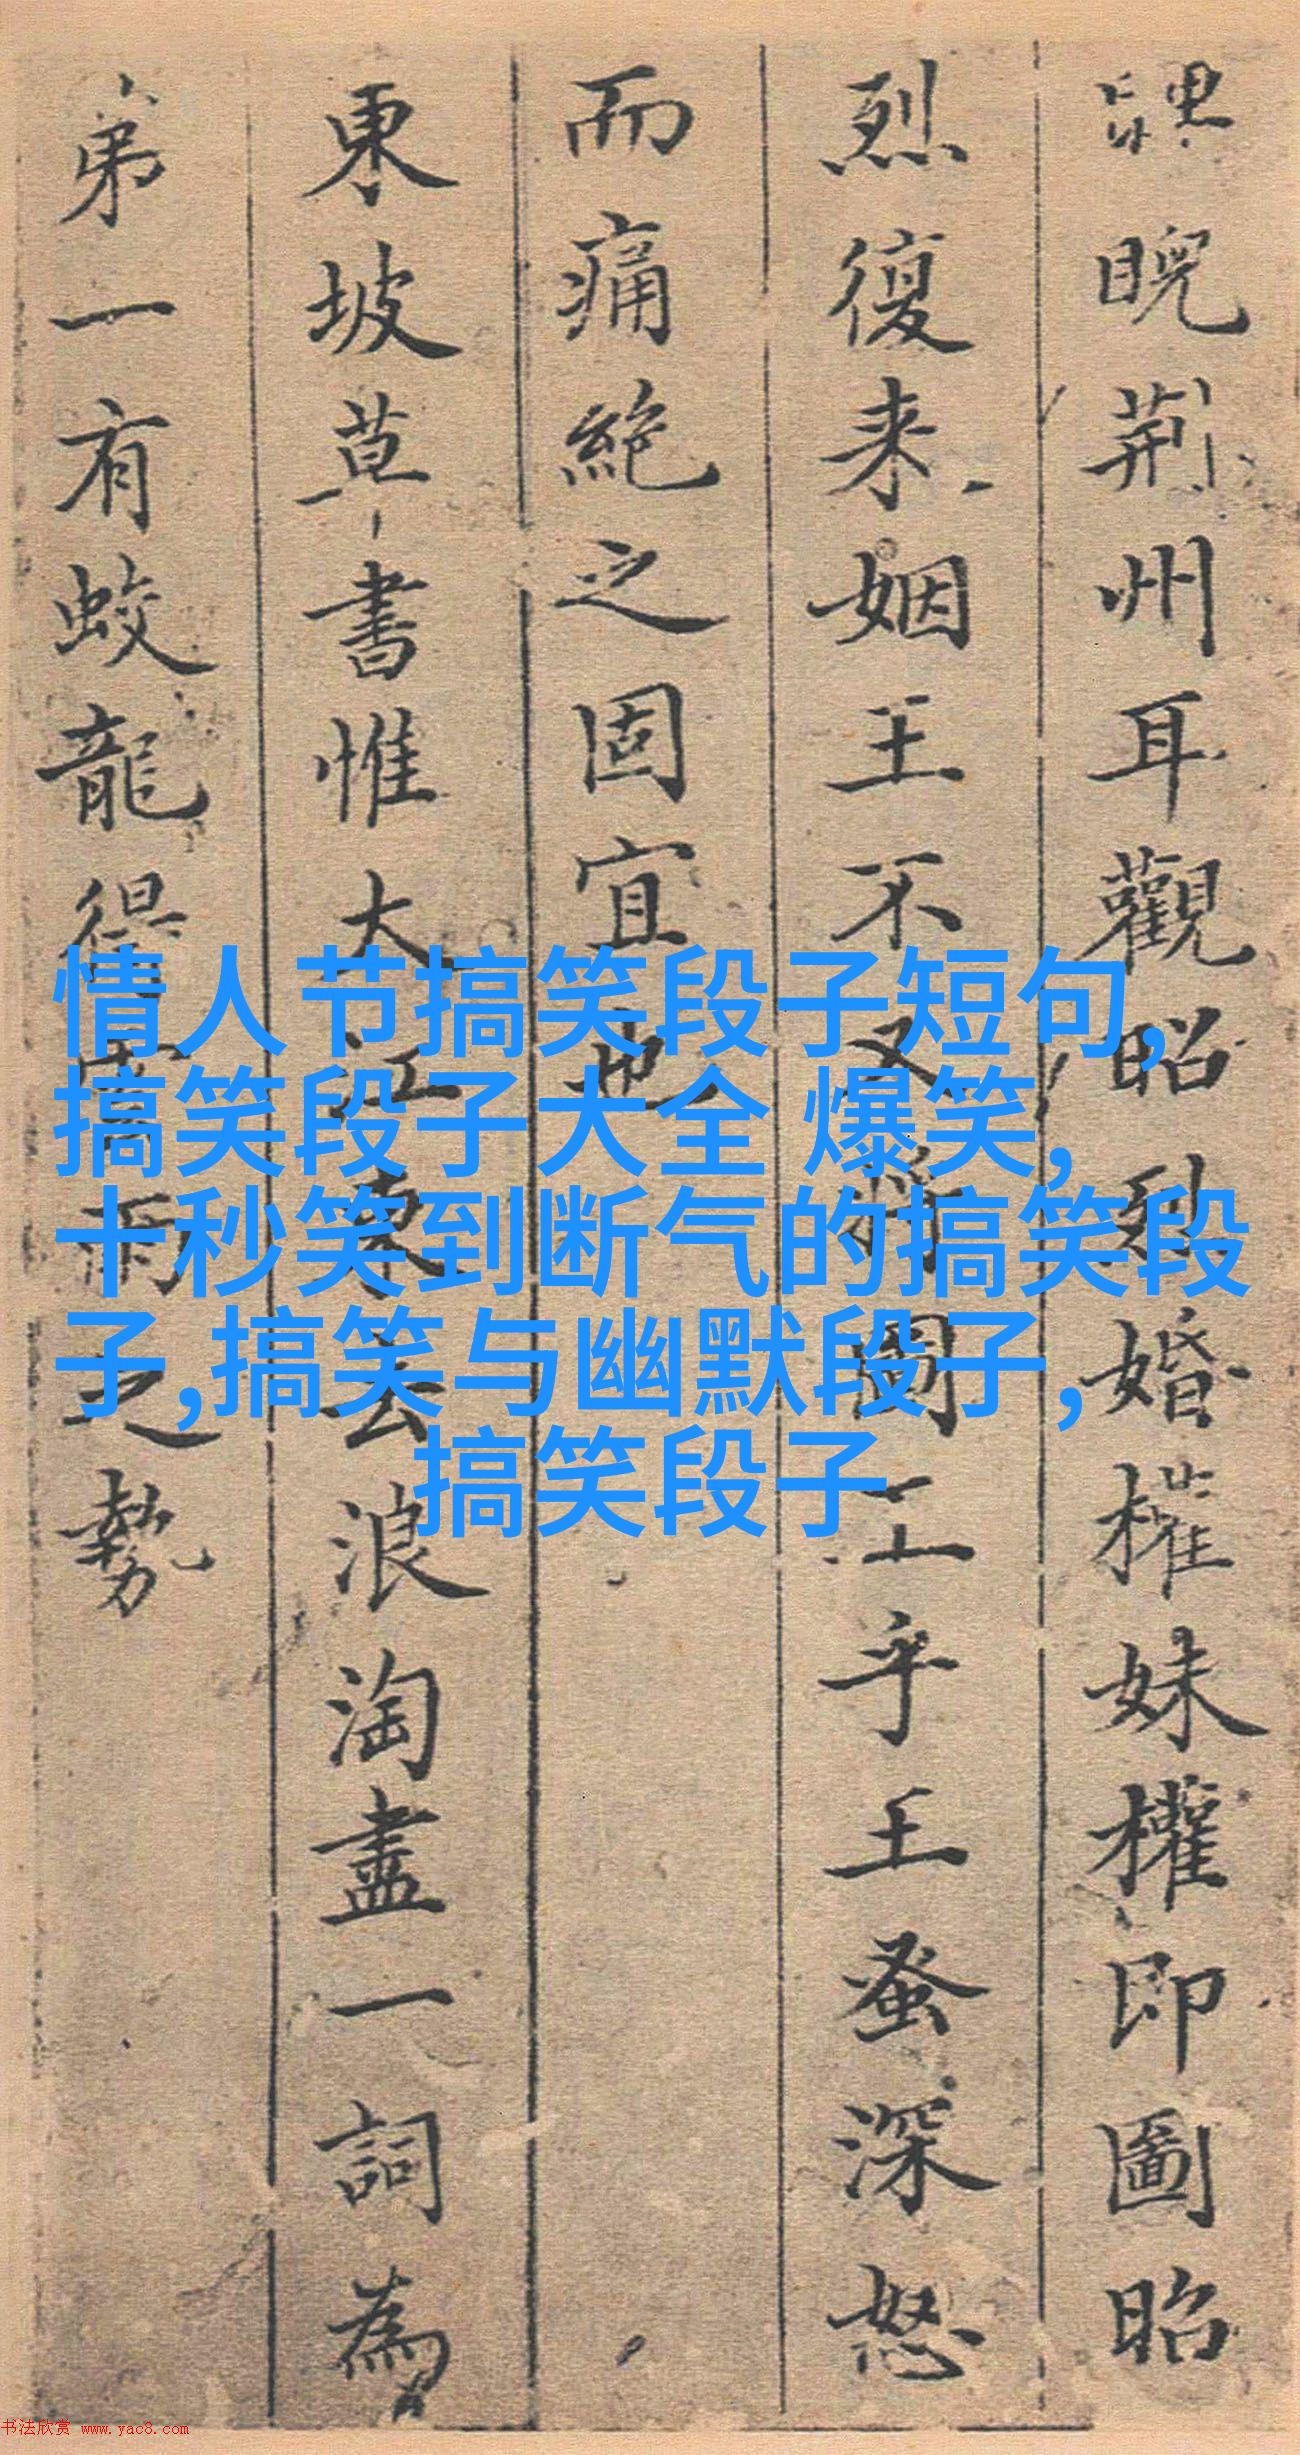 睨荆州耳觀昭烈婚權妹權即圖昭
烈復来姻王不又將圖工乎王蚤深怒
而痛絶之固宜也
東坡草書惟大江東去浪淘盡一詞為
弟一有蛟龍得雲雨之勢
情人节搞笑段子短句,
搞笑段子大全 爆笑,
十秒笑到断气的搞笑段
子,搞笑与幽默段子,
搞笑段子
书法欣赏 www.yac8.com